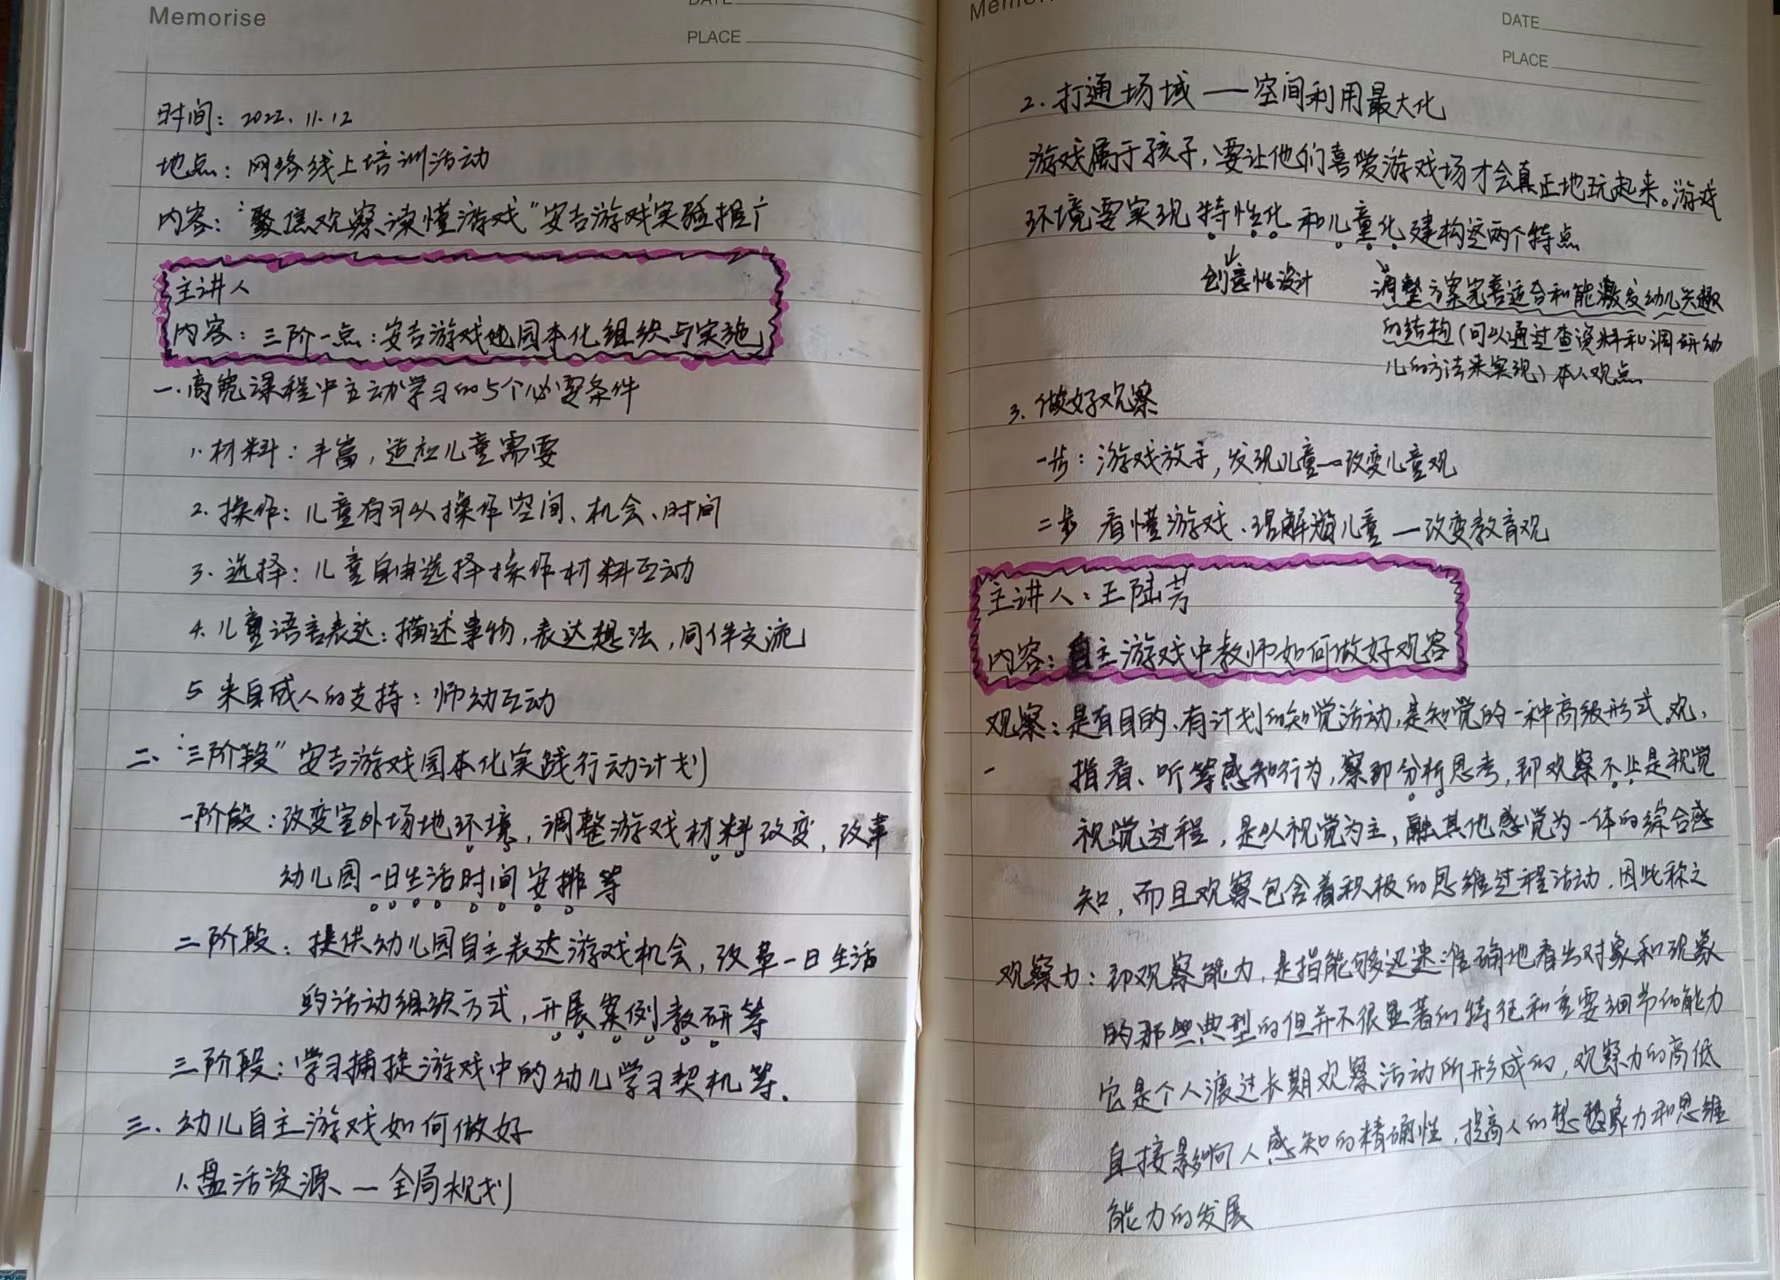 Memorise
DATE
PLACE
时间：2022.11.12
地点：网络线上培训活动
内容：“聚焦观察读懂游戏”安吉游戏实验推广
主讲人
内容：三阶一点：安吉游戏她园本化组织与实施
一.高宽课程中主动学习的5个必要条件
1.材料：丰富，适松儿童需要
2.操作：儿童有可以操作空间、机会、时间
3.选择：儿童自由选择操作材料互动
4.儿童语言表达：描述事物，表达想法，同伴交流
5 来自成人的支持：师幼互动
二、“三阶段”安吉游戏园本化实践行动计划
一阶段：改变室外场地环境，调整游戏材料改变，改革
幼儿园一日生活时间安排等
二阶段：提供幼儿园自主表达游戏机会，改革一日生活
的活动组织方式，开展案例教研等
三阶段：学习捕捉游戏中的幼儿学习契机等.
三、幼儿自主游戏如何做好
1.盘活资源 — 全局规划
DATE
PLACE
2.打通场域 — 空间利用最大化
游戏属于孩子，要让他们喜爱游戏场才会真正地玩起来。游戏
环境要实现特性化和儿童化建构这两个特点
创意性设计
调整方案完善适合和能激发幼儿兴趣
的结构（可以通过查资料和调研幼
儿的方法来实现）本人观点
3.做好观察
一步：游戏放手，发现儿童—改变儿童观
二步 看懂游戏、理解儿童—改变教育观
主讲人：王陆芳
内容：自主游戏中教师如何做好观容
观察：是有目的、有计划的知觉活动，是知觉的一种高级形式。观，
指看、听等感知行为，察即分析思考，即观察不止是视觉
视觉过程，是以视觉为主，融其他感觉为一体的综合感
知，而且观察包含着积极的思维过程活动，因此称之
观察力：即观察能力，是指能够迅速准确地看出对象和现象
的那些典型的但并不很显著的特征和重要细节的能力
它是个人渡过长期观察活动所形成的，观察力的高低
直接影响人感知的精确性，提高人的想象力和思维
能力的发展